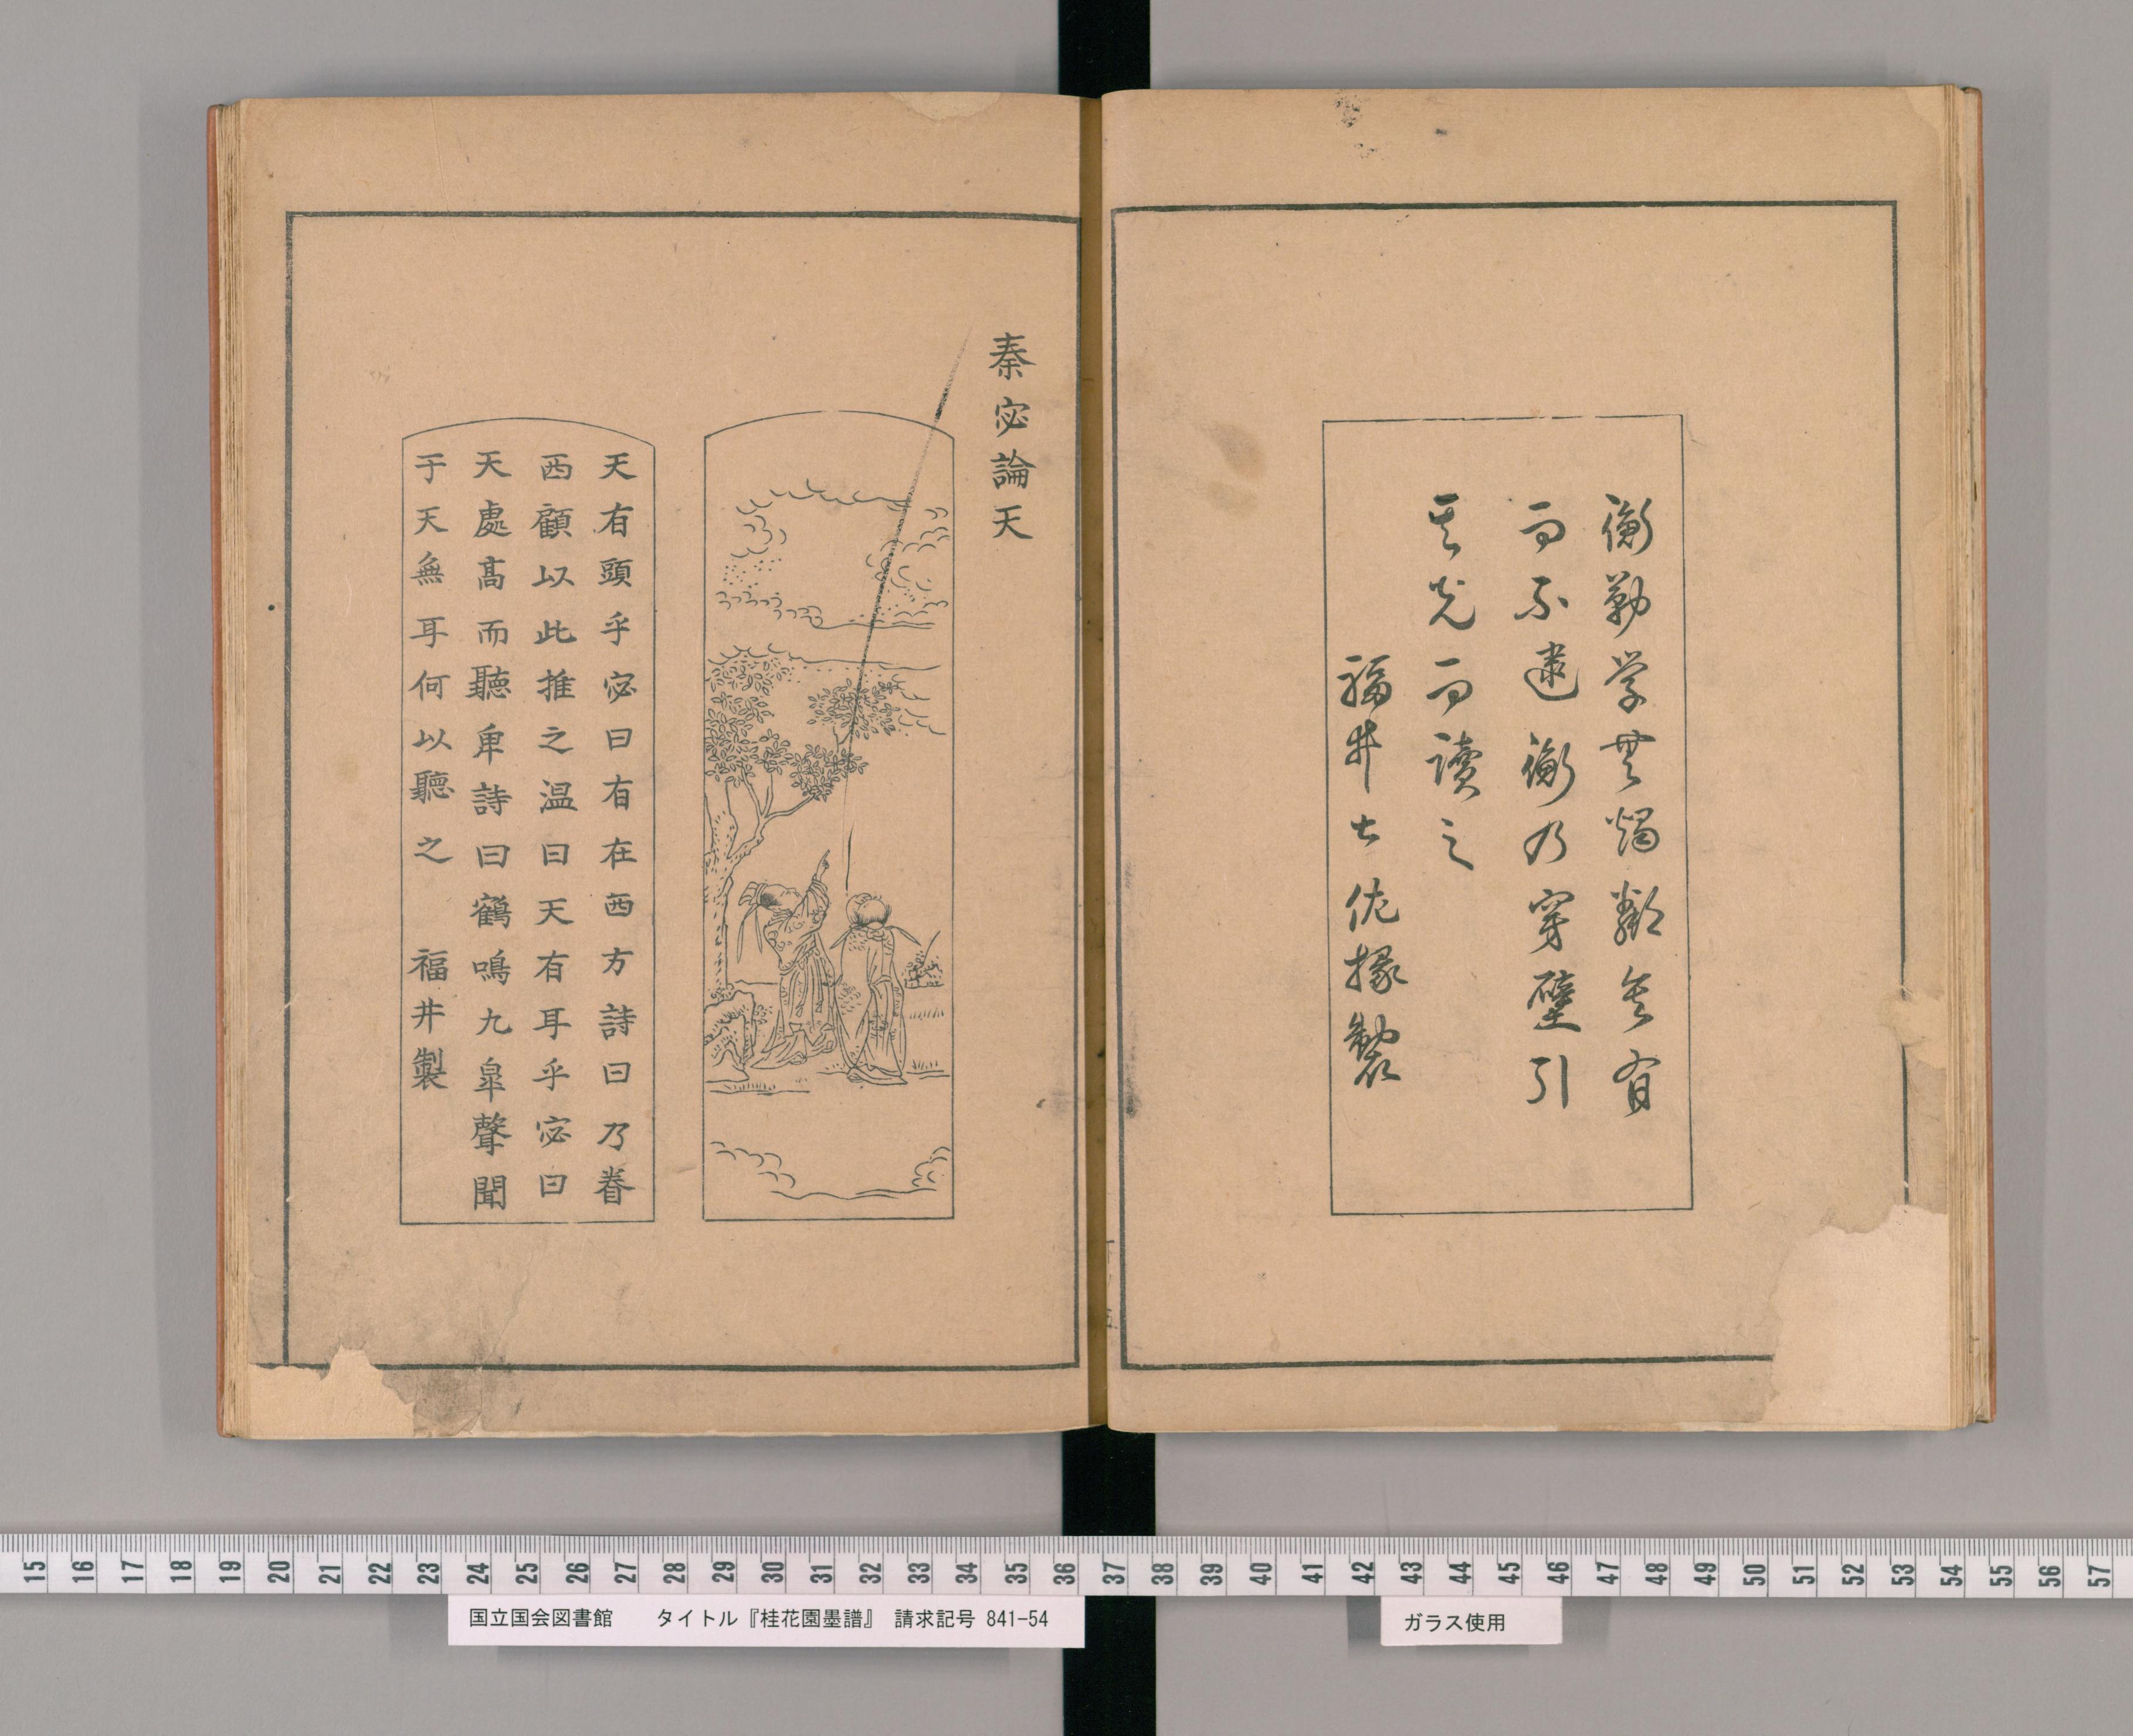 衡勤学無燭鄰舎有
而不逮衡乃穿壁引
其光而讀之
福井大佐掾製
秦宓論天
天有頭乎宓曰有在西方詩曰乃眷
西顧以此推之温曰天有耳乎宓曰
天處髙而聽卑詩曰鶴鳴九皐聲聞
于天無耳何以聽之　福井製
15 16 17 18 19 20 21 22 23 24 25 26 27 28 29 30 31 32 33 34 35 36 37 38 39 40 41 42 43 44 45 46 47 48 49 50 51 52 53 54 55 56 57
国立国会図書館　タイトル『桂花園墨譜』　請求記号 841-54
ガラス使用